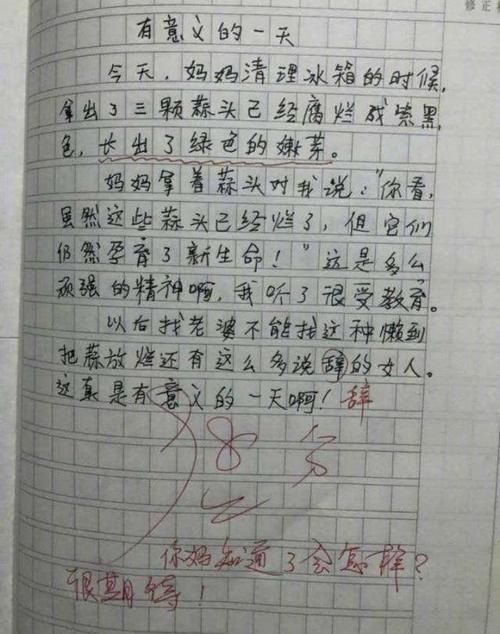 修正
有意义的一天
今天，妈妈清理冰箱的时候，
拿出了三颗蒜头已经腐烂成漆黑
色，长出了绿色的嫩芽。
妈妈拿着蒜头对我说："你看，
虽然这些蒜头已经烂了，但它们
仍然孕育了新生命！"这是多么
顽强的精神啊，我听了很受教育。
以后找老婆不能找这种懒到
把蒜放烂还有这么多说辞的女人。
这真是有意义的一天啊！辞
8分
你妈知道了会怎样？
很期待！